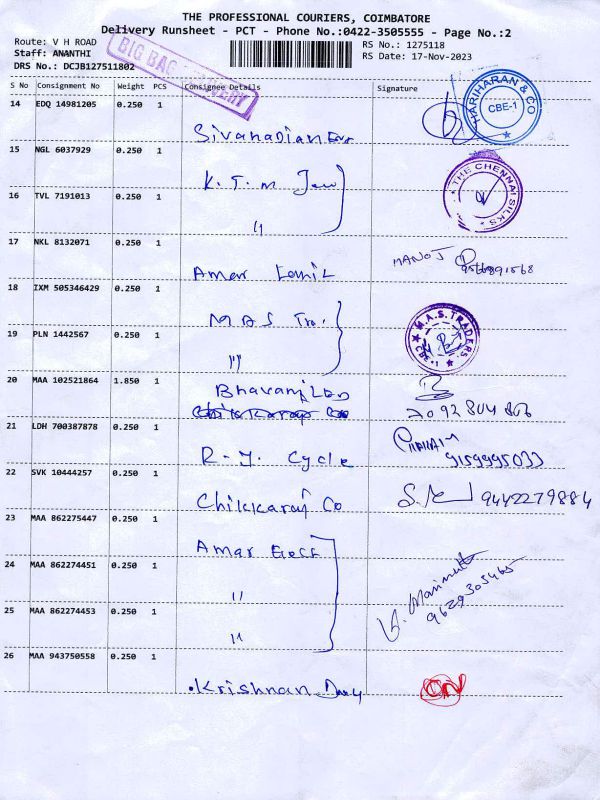 THE PROFESSIONAL COURIERS, COIMBATORE
Delivery Runsheet - PCT - Phone No.:0422-3505555 - Page No.:2
Route: V H ROAD
RS No.: 1275118
Staff: ANANTHI
RS Date: 17-Nov-2023
DRS No.: DCJB127511802
BIG BAG DELIVERY
S No Consignment No Weight PCS Consignee Details Signature
14 EDQ 14981205 0.250 1
HARIHARAN & CO
CBE-1
15 NGL 6037929 0.250 1
K. T. M Jew
THE CHENNAI SILKS
16 TVL 7191013 0.250 1
"
17 NKL 8132071 0.250 1
Amar MANOJ
18 IXM 505346429 0.250 1
M A S Tra.
M.A.S. TRADERS
CBE-1
19 PLN 1442567 0.250 1
"
20 MAA 102521864 1.850 1
Bhavani
21 LDH 700387878 0.250 1
R. Cycle 9159995033
22 SVK 10444257 0.250 1
Chikkaraj Co 9442279884
23 MAA 862275447 0.250 1
Amar
24 MAA 862274451 0.250 1
"
9629305465
25 MAA 862274453 0.250 1
"
26 MAA 943750558 0.250 1
Krishnan